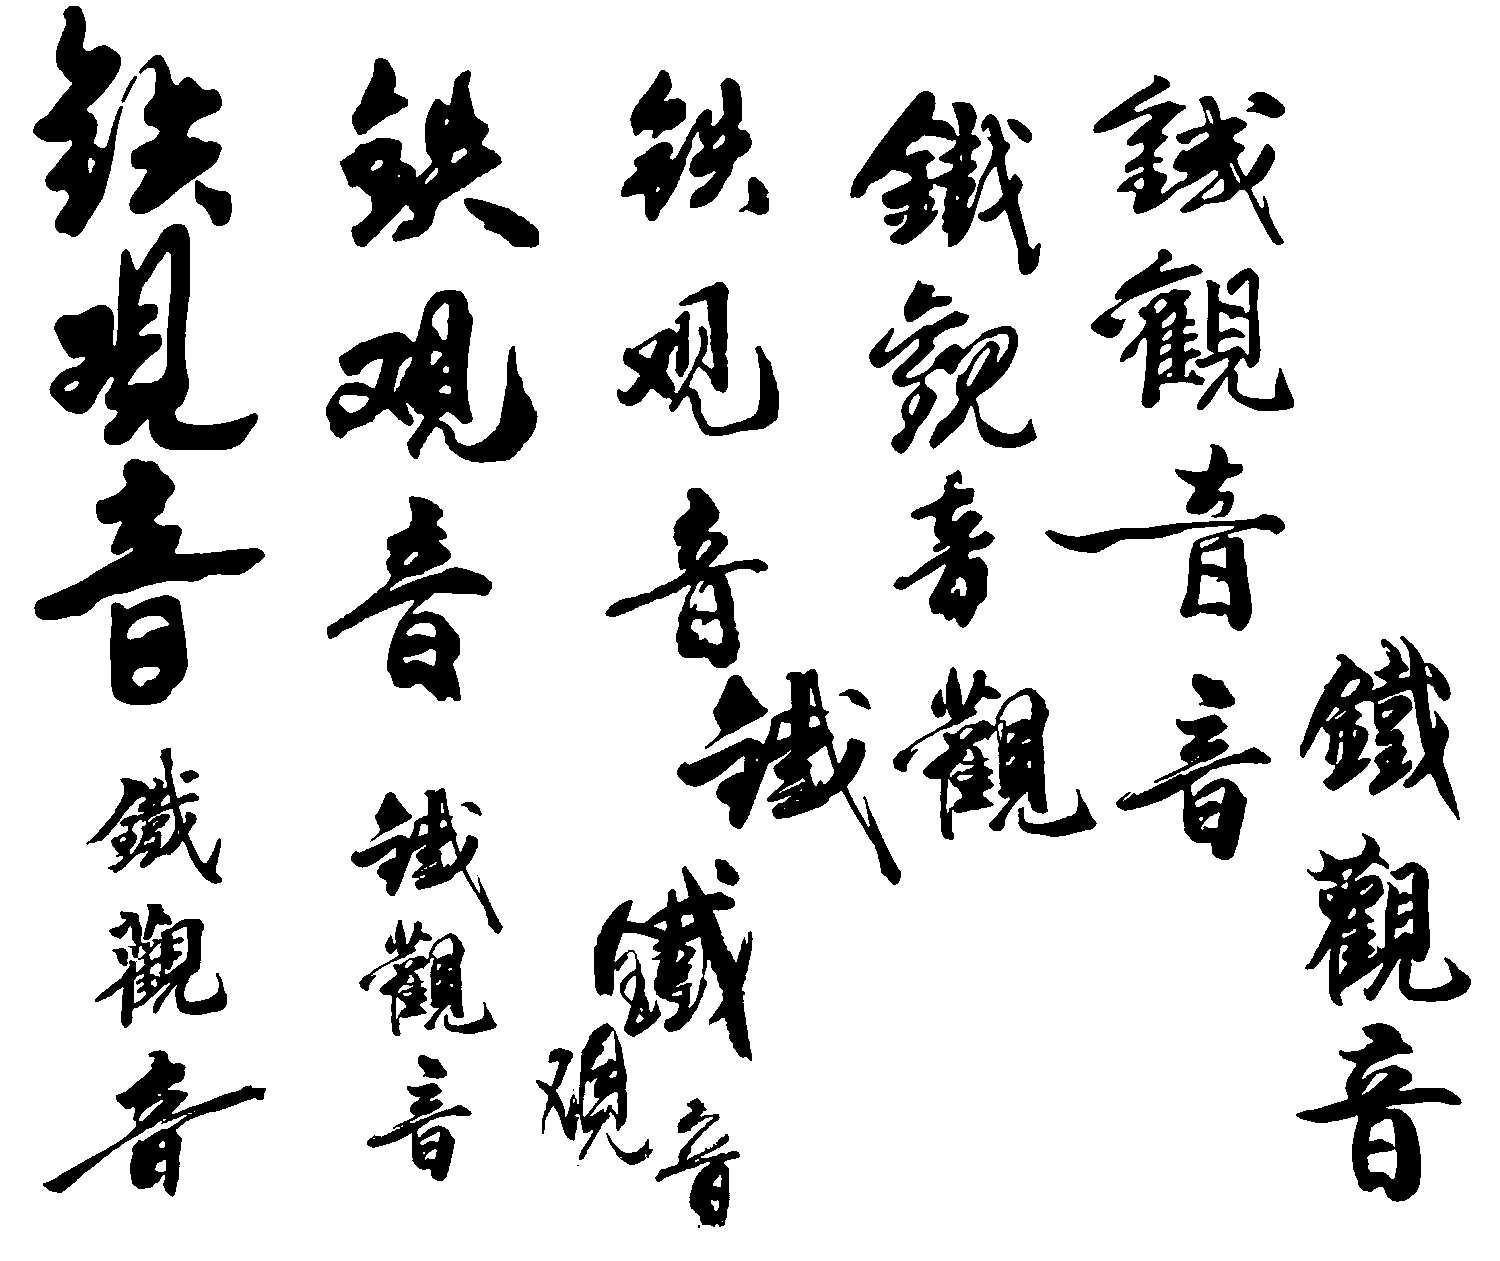 铁观音
铁观音
铁观音
鐵觀音
鐵觀音
鐵觀音
鐵觀音
鐵观音
鐵觀音
鐵觀音